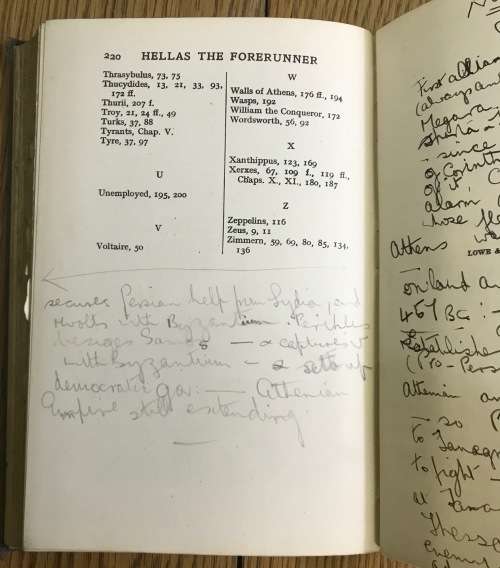 220 HELLAS THE FORERUNNER
Thrasybulus, 73, 75
Thucydides, 13, 21, 33, 93,
172 ff.
Thurii, 207 f.
Troy, 21, 24 ff., 49
Turks, 37, 88
Tyrants, Chap. V.
Tyre, 37, 97
U
Unemployed, 195, 200
V
Voltaire, 50
W
Walls of Athens, 176 ff., 194
Wasps, 192
William the Conqueror, 172
Wordsworth, 56, 92
X
Xanthippus, 123, 169
Xerxes, 67, 109 f., 119 ff.,
Chaps. X., XI., 180, 187
Z
Zeppelins, 116
Zeus, 9, 11
Zimmern, 59, 69, 80, 85, 134,
136
secures Persian help from Lydia, and
revolts with Byzantium. Perikles
besieges Samos — & captures it
with Byzantium — & sets up
democratic gov: — Athenian
Empire still extending.
First allian
(always an
Megara
Sparta
- since
of Corinth
of it
alarm
whose fle
Athens
LOWE &
on land a
457 BC : -
Establishe
(Pro - Pers
Athenian an
- so
to Tanagr
to fight -
at Tana
Thess
enemy